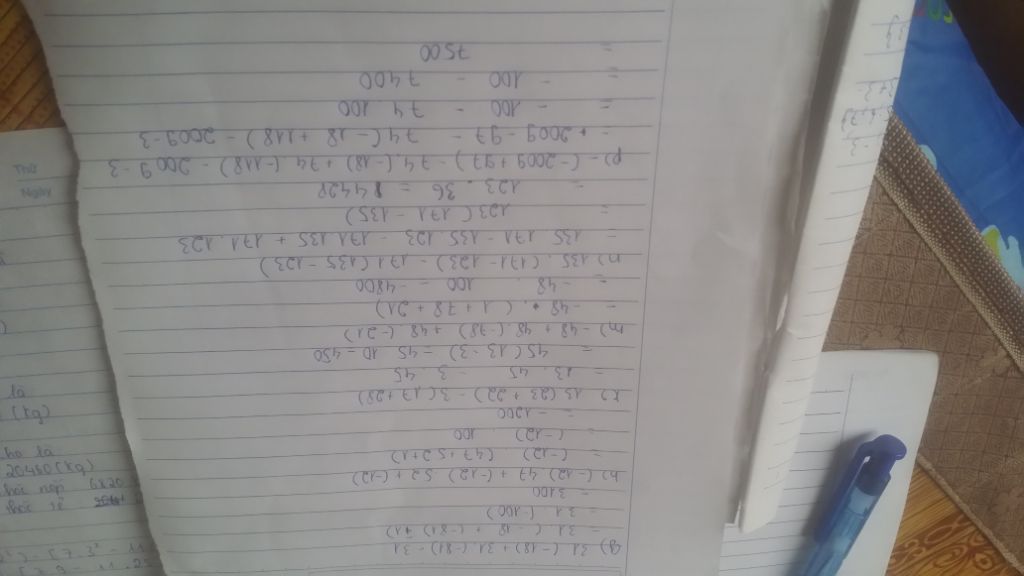 g) 31.(-18) + 31.(-81) - 31
= 31.(-18 + (-81) - 1)
= 31 (-100)
= 3100
h) (-12) 47 + (-12) 52 + (-12)
= (-12) (47 + 52 + 1)
= (-12) . 100
= -1200
13 (23 + 22) - 3 (17 + 28)
= 13 . 45 - 3 . 45
= 45 (13 - 3) = 45 . 10 = 450
m) -48 + 48.(-78) + 48 (-21)
= -48 . (1 + 78 + 21)
= -48 . 100 = -4800
n) 135 . (171 - 123) - 171 (135 - 123)
= 135 171 - 135 . 123 - 171 135 + 171 . 123
= 123 (171 - 135)
= 123 . 36 = 4428
p) - (-2009 + 97) - 74.(-18) + 74 (-118) - 2009 - 3
+ 2009 - 97 - 74 (-18 + 118) - 2009 - 3
= - 100 - 74 . 100
= - 100 - 7400
= 7500
Thứ
Ngày
là
(kg)
là
20480 (kg)
6820